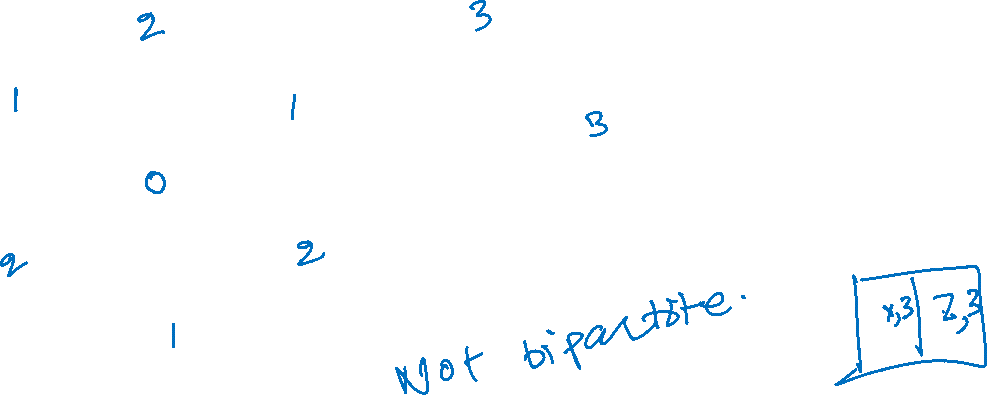 2 3
1 1 3
0
2 2
1
Not bipartite.
x,3 Z,3